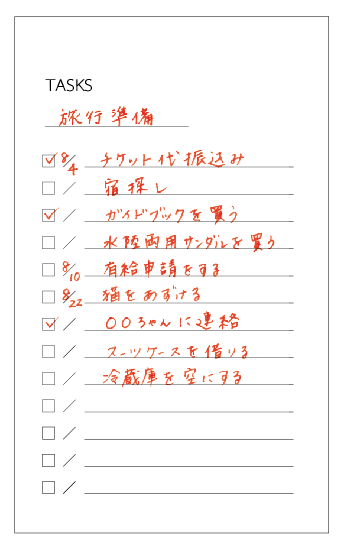 TASKS
旅行準備
☑ 8/4 チケット代振込み
☐ / 宿探し
☑ / ガイドブックを買う
☐ / 水陸両用サンダルを買う
☐ 8/10 有給申請をする
☐ 8/22 猫をあずける
☑ / 〇〇ちゃんに連絡
☐ / スーツケースを借りる
☐ / 冷蔵庫を空にする
☐ /
☐ /
☐ /
☐ /